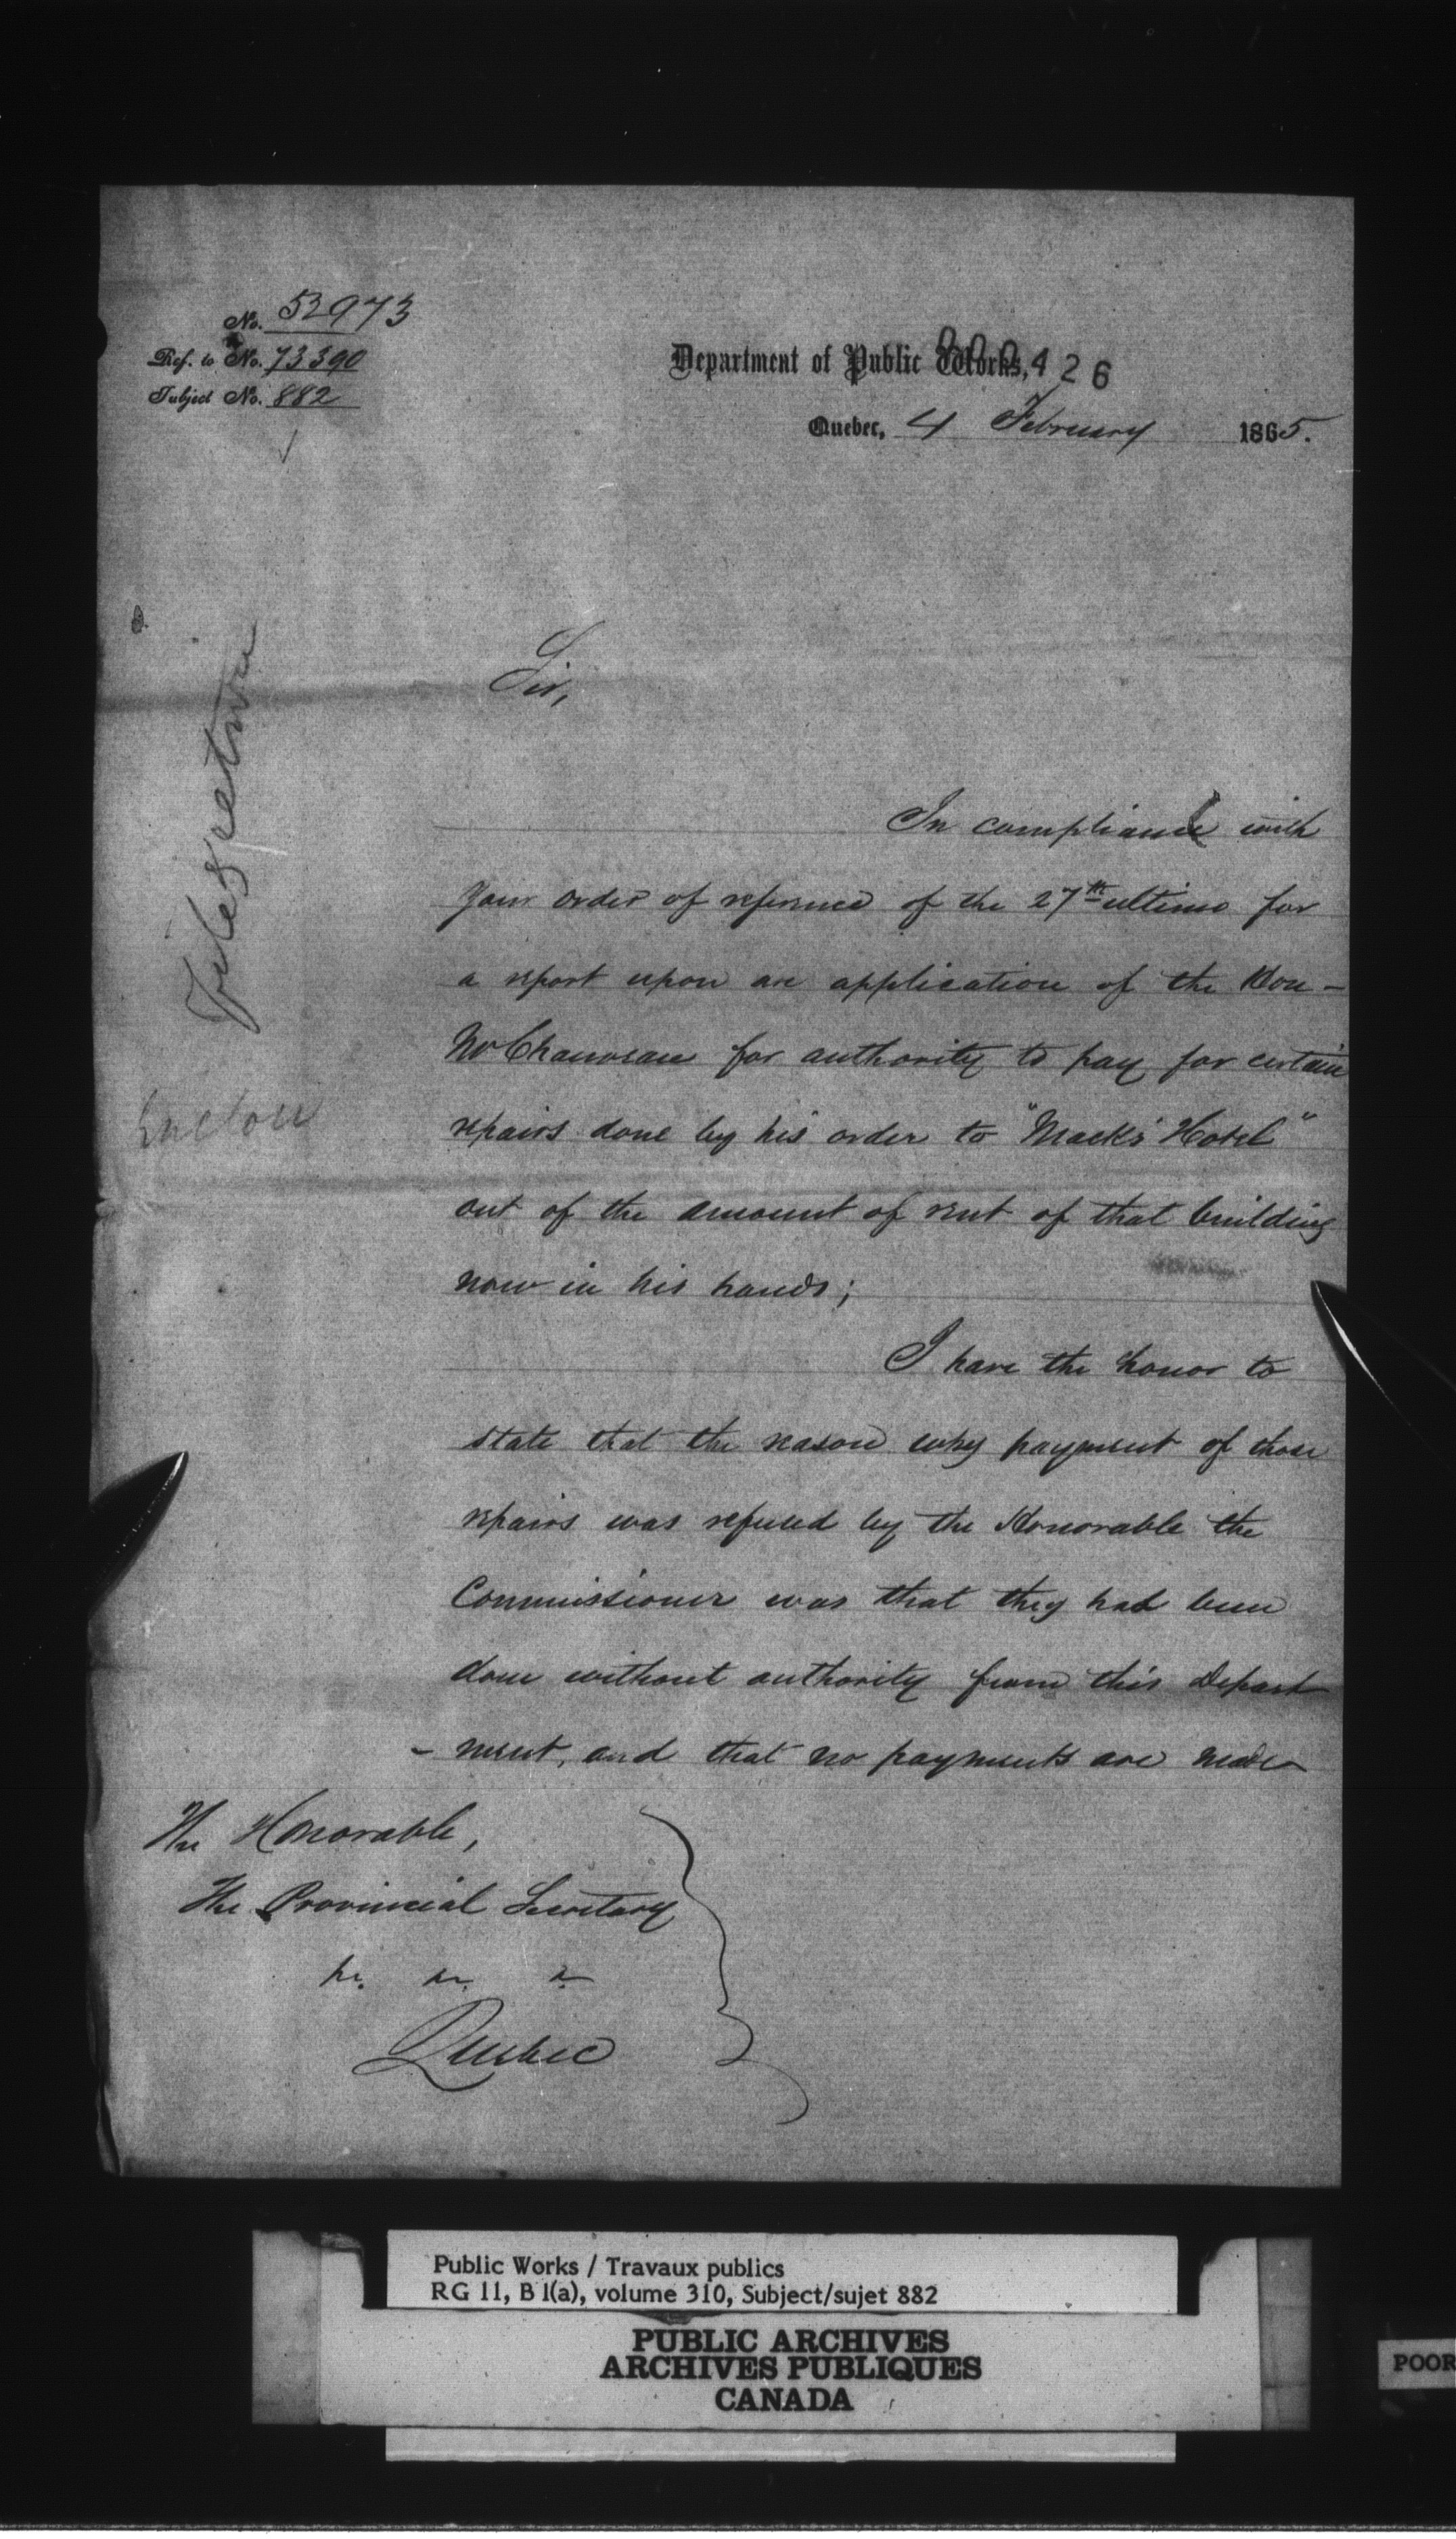 No. 52973
Ref. to No. 73390
Subject No. 882
000426
Department of Public Works,
Quebec, 4 February 1865.
Sir,
In compliance with
your order of reference of the 27th ultimo for
a report upon an application of the Hon-
Mr Chauveau for authority to pay for certain
repairs done by his order to "Mack's Hotel"
out of the amount of rent of that building
now in his hands;
I have the honor to
state that the reason why payment of those
repairs was refused by the Honorable the
Commissioner was that they had been
done without authority from this Depart
- ment, and that no payments are made
The Honorable,
The Provincial Secretary
Quebec
Public Works / Travaux publics
RG 11, B 1(a), volume 310, Subject/sujet 882
PUBLIC ARCHIVES
ARCHIVES PUBLIQUES
CANADA
POOR